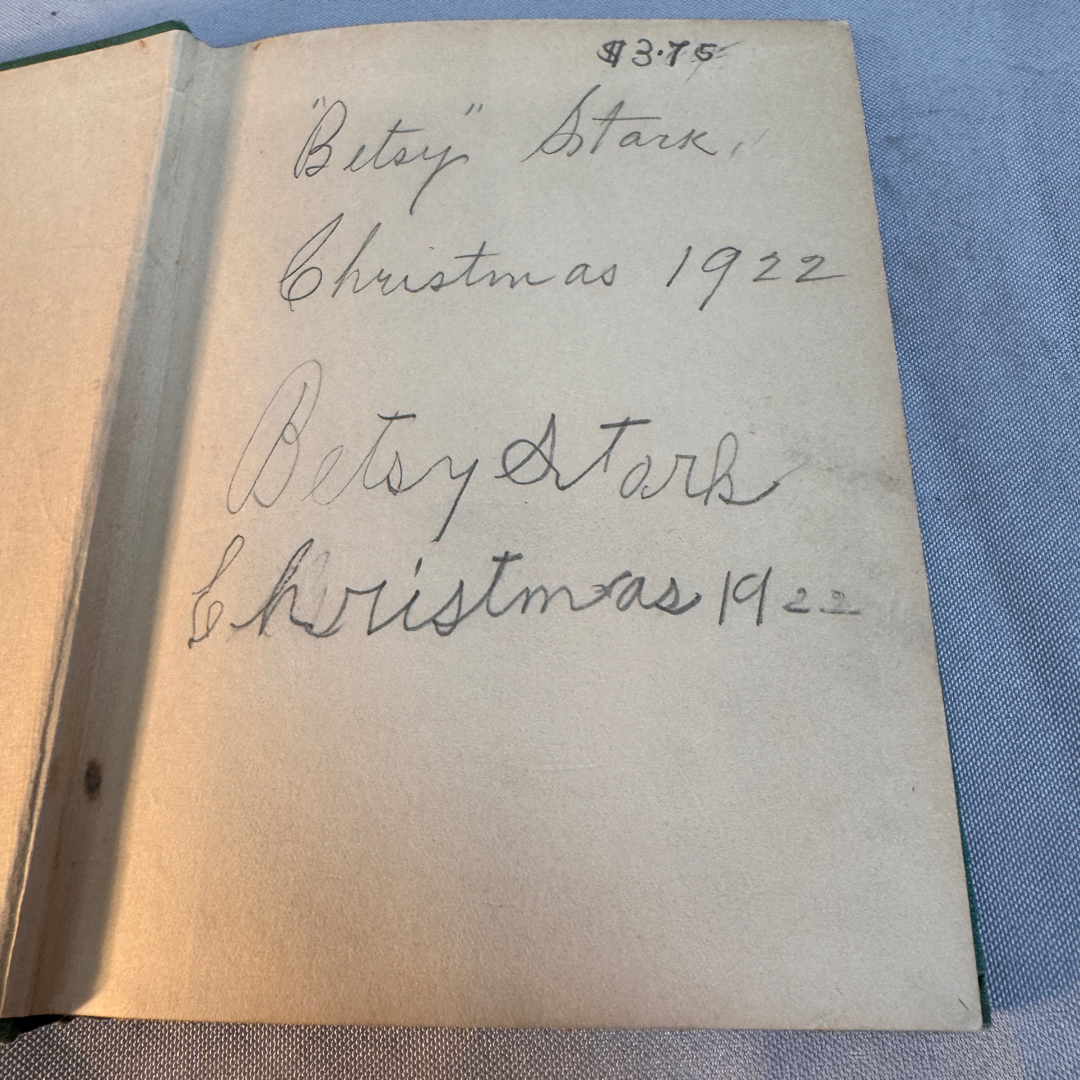 $3.75
"Betsy" Stark,
Christmas 1922
Betsy Stark
Christmas 1922